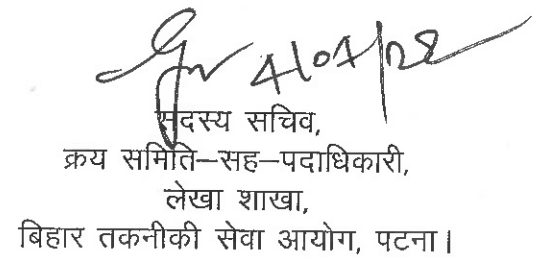 4/04/28
सदस्य सचिव,
क्रय समिति–सह–पदाधिकारी,
लेखा शाखा,
बिहार तकनीकी सेवा आयोग, पटना।